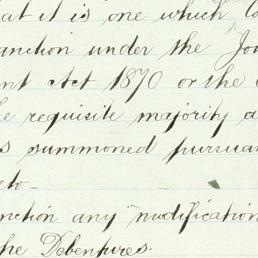 at it is one which
anction under the Jo
nt Act 1870 or the
he requisite majority a
s summoned pursua
eto
nction any modification
the Debentures.